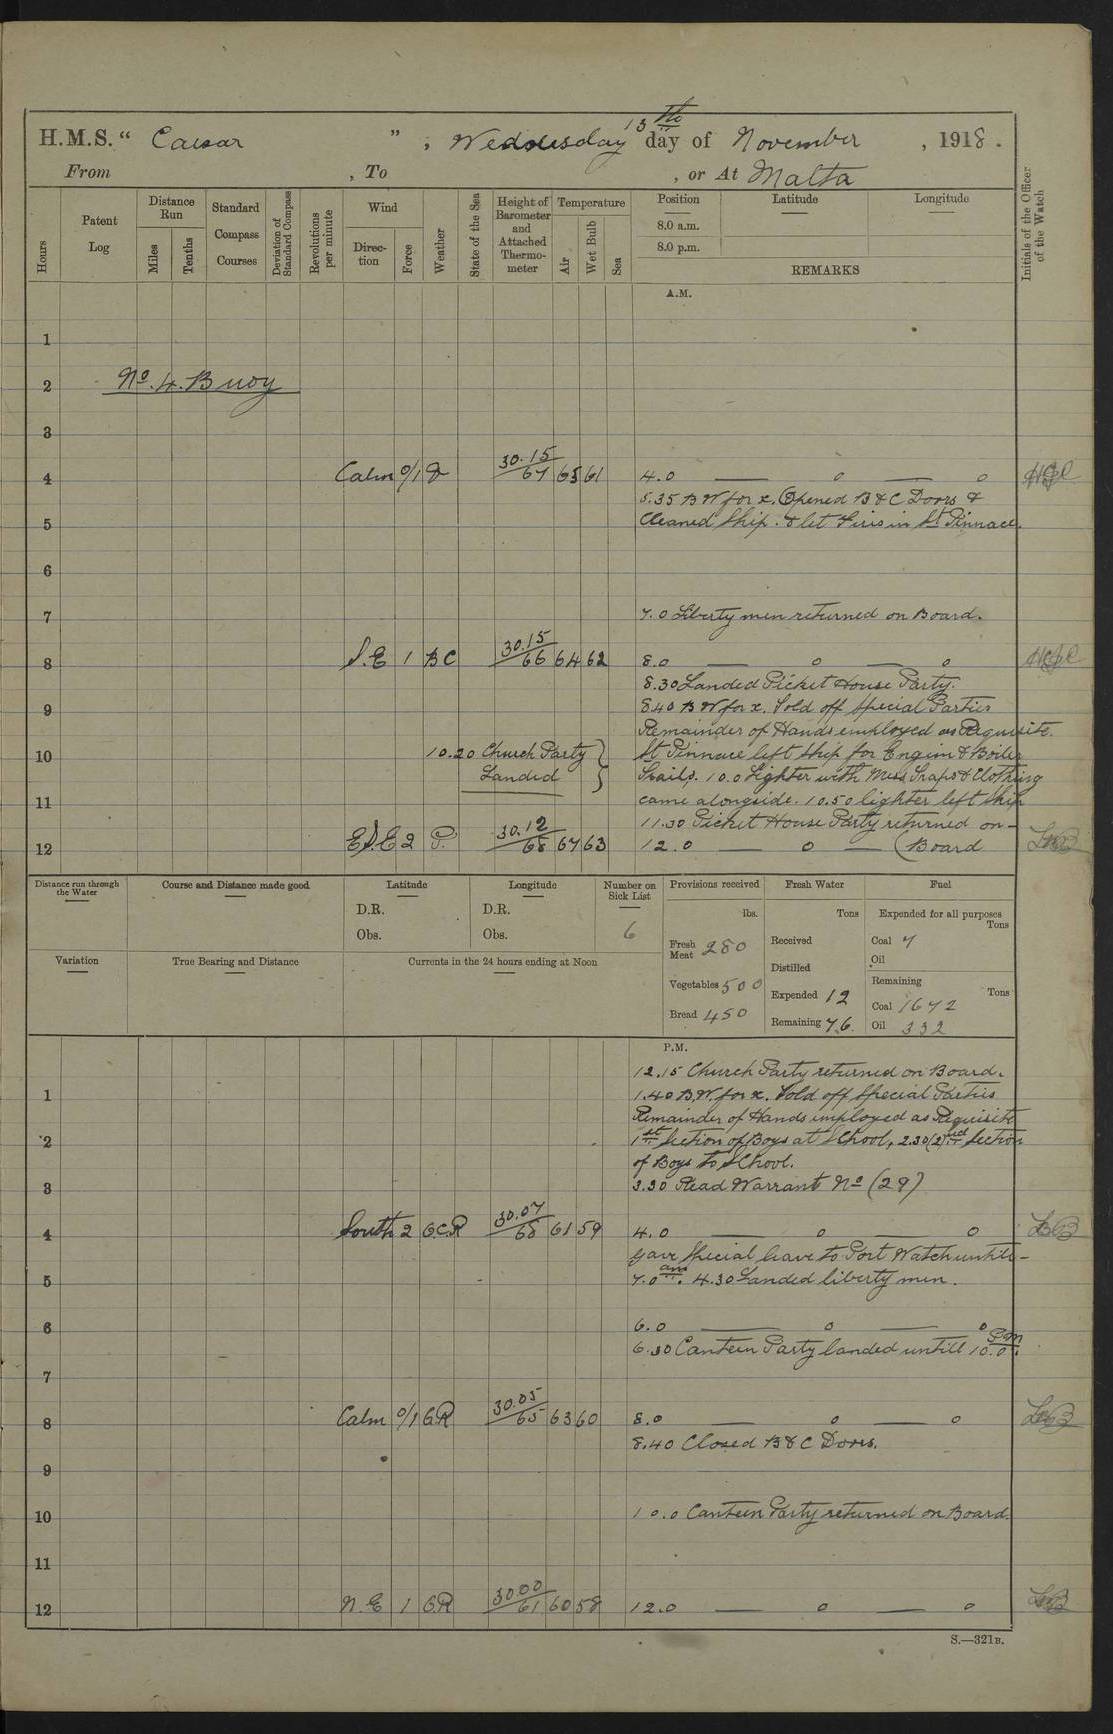 H.M.S. “ Caesar ” , Wednesday 13th day of November , 1918 .
From , To , or At Malta
Hours
Patent Log
Distance Run
Miles
Tenths
Standard Compass Courses
Deviation of Standard Compass
Revolutions per minute
Wind
Direc-tion
Force
Weather
State of the Sea
Height of Barometer and Attached Thermo-meter
Temperature
Air
Wet Bulb
Sea
Position Latitude Longitude
8.0 a.m.
8.0 p.m.
REMARKS
Initials of the Officer of the Watch
A.M.
1
2 No. 4. Buoy
3
4 Calm 0/1 30.15/67 65 61 4.0 — o — o
5.35 B W for x. Opened B & C Doors &
5 Cleaned Ship. & let Firis in St Pinnace.
6
7 7.0 Liberty men returned on Board.
8 S.E 1 BC 30.15/66 64 62 8.0 — o — o
8.30 Landed Picket House Party.
9 8.40 B W for x. Told off Special Parties
Remainder of Hands employed as Requisite.
10 10.20 Church Party } St Pinnace left Ship for Engim & Boiler
Landed } Trails. 10.0 Lighter with Mess Traps & Clothing
11 came alongside. 10.50 lighter left Ship
11.30 Picket House Party returned on –
12 ESE 2 P. 30.12/68 67 63 12.0 — o — (Board
Distance run through the Water
Course and Distance made good
Latitude
D.R.
Obs.
Longitude
D.R.
Obs.
Number on Sick List
6
Provisions received
lbs.
Fresh Meat 280
Vegetables 500
Bread 450
Fresh Water
Tons
Received
Distilled
Expended 12
Remaining 76.
Fuel
Expended for all purposes
Tons
Coal 7
Oil
Remaining
Tons
Coal 1672
Oil 332
Variation
True Bearing and Distance
Currents in the 24 hours ending at Noon
P.M.
12.15 Church Party returned on Board.
1 1.40 B.W. for x. Told off Special Parties
Remainder of Hands employed as Requisite
2 1st Section of Boys at School, 2.30 (2)nd Section
of Boys to School.
3 3.30 Read Warrant No (29)
4 South 2 O.C.R 30.07/68 61 59 4.0 — o — o
gave Special leave to Port Watch untill –
5 7.0 am. 4.30 Landed liberty men.
6 6.0 — o — o
6.30 Canteen Party landed untill 10.0 P.M.
7
8 Calm 0/1 O.R 30.05/65 63 60 8.0 — o — o
8.40 Closed B & C Doors.
9
10 10.0 Canteen Party returned on Board.
11
12 N.E 1 O.R 30.00/61 60 58 12.0 — o — o
S.—321B.